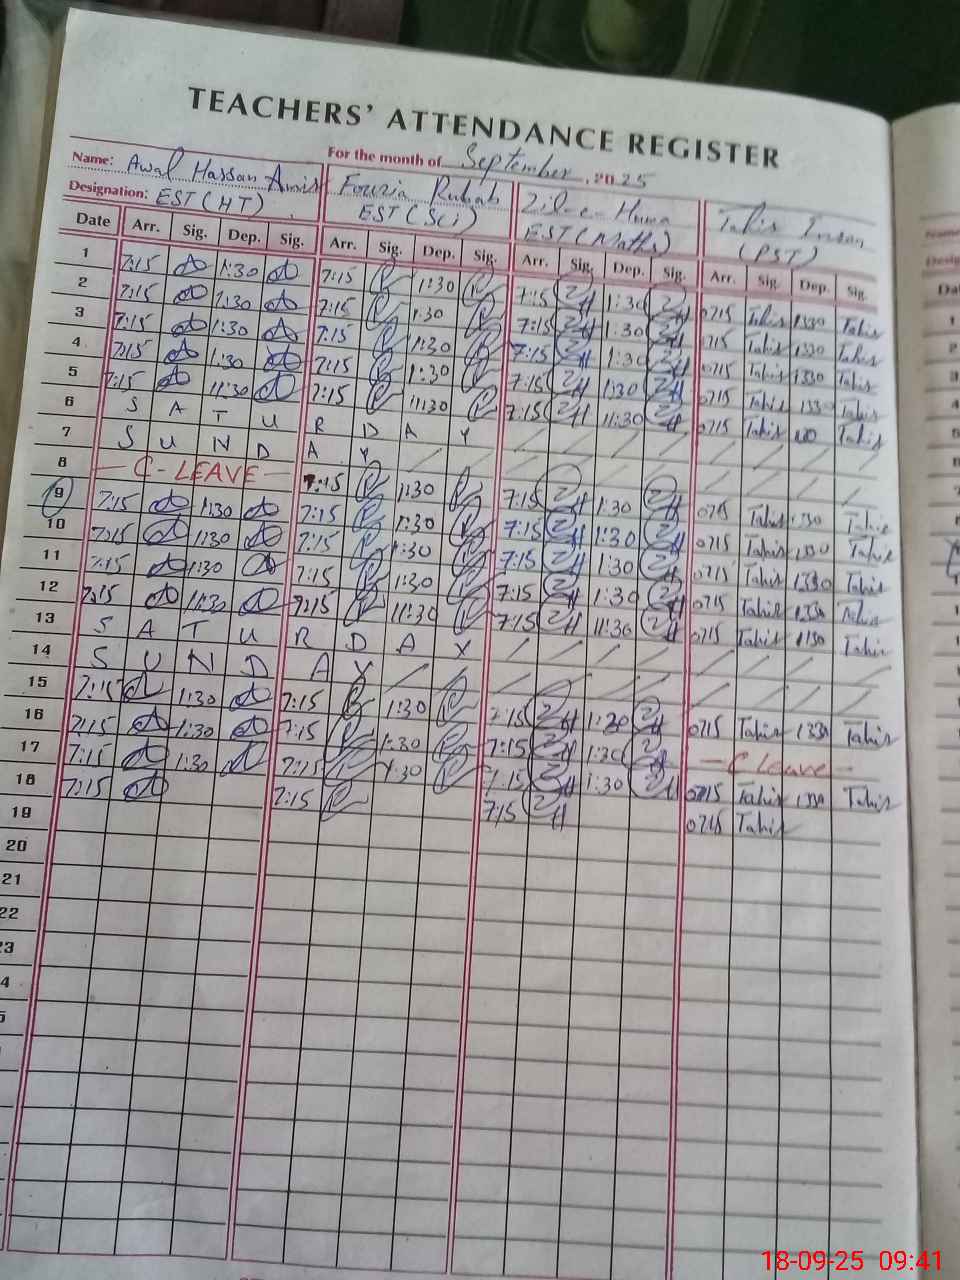 TEACHERS' ATTENDANCE REGISTER
For the month of September, 2025
Name: Awal Hassan Amir Fouzia Rubab Zil-e-Huma Tahir Imran
Designation: EST (HT) EST (Sci) EST (Maths) (PST)
Date Arr. Sig. Dep. Sig. Arr. Sig. Dep. Sig. Arr. Sig. Dep. Sig. Arr. Sig. Dep. Sig.
1 7:15 1:30 7:15 1:30 7:15 1:30 0715 Tahir 1330 Tahir
2 7:15 1:30 7:15 1:30 7:15 1:30 0715 Tahir 1330 Tahir
3 7:15 1:30 7:15 1:30 7:15 1:30 0715 Tahir 1330 Tahir
4 7:15 1:30 7:15 1:30 7:15 1:30 0715 Tahir 1330 Tahir
5 7:15 11:30 7:15 11:30 7:15 11:30 0715 Tahir Tahir
6 S A T U R D A Y
7 S U N D A Y
8 — C-LEAVE — 7:15 1:30 7:15 1:30 0715 Tahir 1330 Tahir
9 7:15 1:30 7:15 1:30 7:15 1:30 0715 Tahir 1330 Tahir
10 7:15 1:30 7:15 1:30 7:15 1:30 0715 Tahir 1330 Tahir
11 7:15 1:30 7:15 1:30 7:15 1:30 0715 Tahir 1330 Tahir
12 7:15 11:30 7:15 11:30 7:15 11:30 0715 Tahir 1130 Tahir
13 S A T U R D A Y
14 S U N D A Y
15 7:15 1:30 7:15 1:30 7:15 1:30 0715 Tahir 1330 Tahir
16 7:15 1:30 7:15 1:30 7:15 1:30 — C leave —
17 7:15 1:30 7:15 1:30 7:15 1:30 0715 Tahir 1330 Tahir
18 7:15 7:15 7:15 0715 Tahir
19
20
21
22
23
18-09-25 09:41